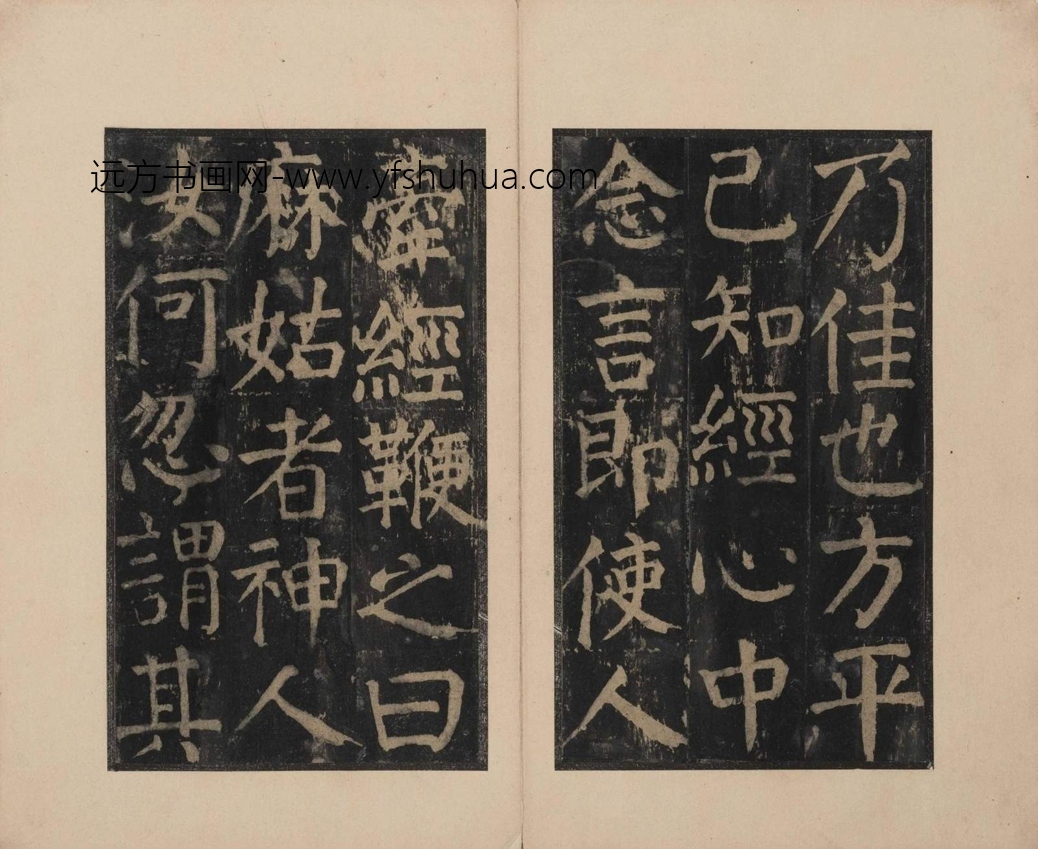 乃佳也方平
已知經心中
念言即使人
牽經鞭之曰
麻姑者神人
汝何忽謂其
远方书画网-www.yfshuhua.com